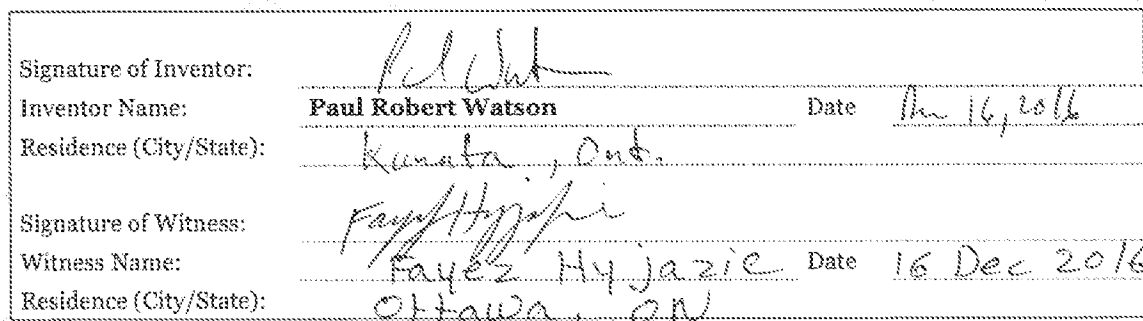 Signature of Inventor:
Inventor Name: Paul Robert Watson Date 16, 2016
Residence (City/State): Kanata, Ont.
Signature of Witness:
Witness Name: Fayez Hyjazie Date 16 Dec 2016
Residence (City/State): Ottawa, ON